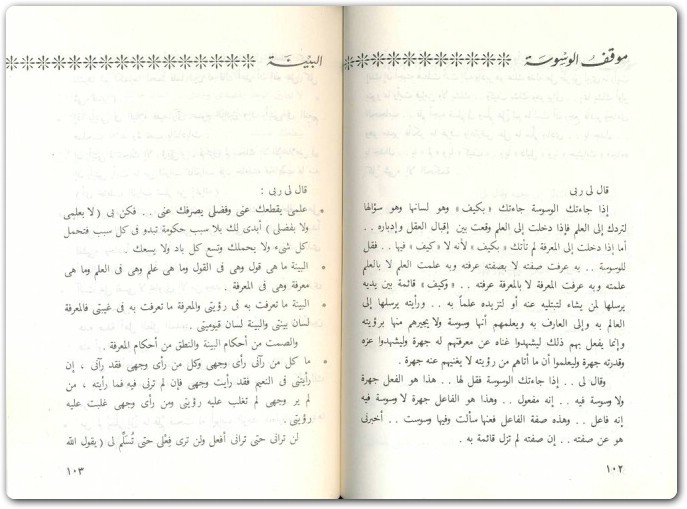 موقف الوسوسة
قال لى ربى
إذا جاءتك الوسوسة جاءتك « بكيف » وهو لسانها وهو سؤالها
لتردك إلى العلم فإذا دخلت إلى العلم وقعت بين إقبال العقل وإدباره . .
أما إذا دخلت إلى المعرفة لم تأتك « بكيف » لأنه لا « كيف » فيها . . فقل
للوسوسة . . به عرفت صفته لا بصفته عرفته وبه علمت العلم لا بالعلم
علمته وبه عرفت المعرفة لا بالمعرفة عرفته . . « وكيف » قائمة بين يديه
يرسلها لمن يشاء لتبتليه عنه أو لتزيده علماً به . . ورأيته يرسلها إلى
العالم به وإلى العارف به ويعلمهم أنها وسوسة ولا يجيرهم منها برؤيته
وإنما يفعل بهم ذلك ليشهدوا غناه عن معرفتهم له جهرة وليشهدوا عزه
وقدرته جهرة وليعلموا أن ما أتاهم من رؤيته لا يغنيهم عنه جهرة .
وقال لى . . إذا جاءتك الوسوسة فقل لها . . هذا هو الفعل جهرة
ولا وسوسة فيه . . إنه مفعول . . وهذا هو الفاعل جهرة لا وسوسة فيه
إنه فاعل . . وهذه صفة الفاعل فعنها سألت وفيها وسوست . . أخبرنى
هو عن صفته . . إن صفته لم تزل قائمة به .
١٠٢
البينة
قال لى ربى :
• علمى يقطعك عنى وفضلى يصرفك عنى . . فكن بى ( لا بعلمى
ولا بفضلى ) أبدى لك بلا سبب حكومة تبدو فى كل سبب فتحمل
كل شىء ولا يحملك وتسع كل باد ولا يسعك .
• البينة ما هى قول وهى فى القول وما هى علم وهى فى العلم وما هى
معرفة وهى فى المعرفة .
• البينة ما تعرفت به فى رؤيتى والمعرفة ما تعرفت به فى غيبتى فالمعرفة
لسان بينتى والبينة لسان قيوميتى .
والصمت من أحكام البينة والنطق من أحكام المعرفة .
• ما كل من رآنى رأى وجهى وكل من رأى وجهى فقد رآنى ، إن
رأيتنى فى النعيم فقد رأيت وجهى فإن لم ترنى فيه فما رأيته ، من
لم ير وجهى لم تغلب عليه رؤيتى ومن رأى وجهى غلبت عليه
رؤيتى .
لن ترانى حتى ترانى أفعل ولن ترى فِعْلى حتى تُسَلِّم لى ( يقول الله
١٠٣